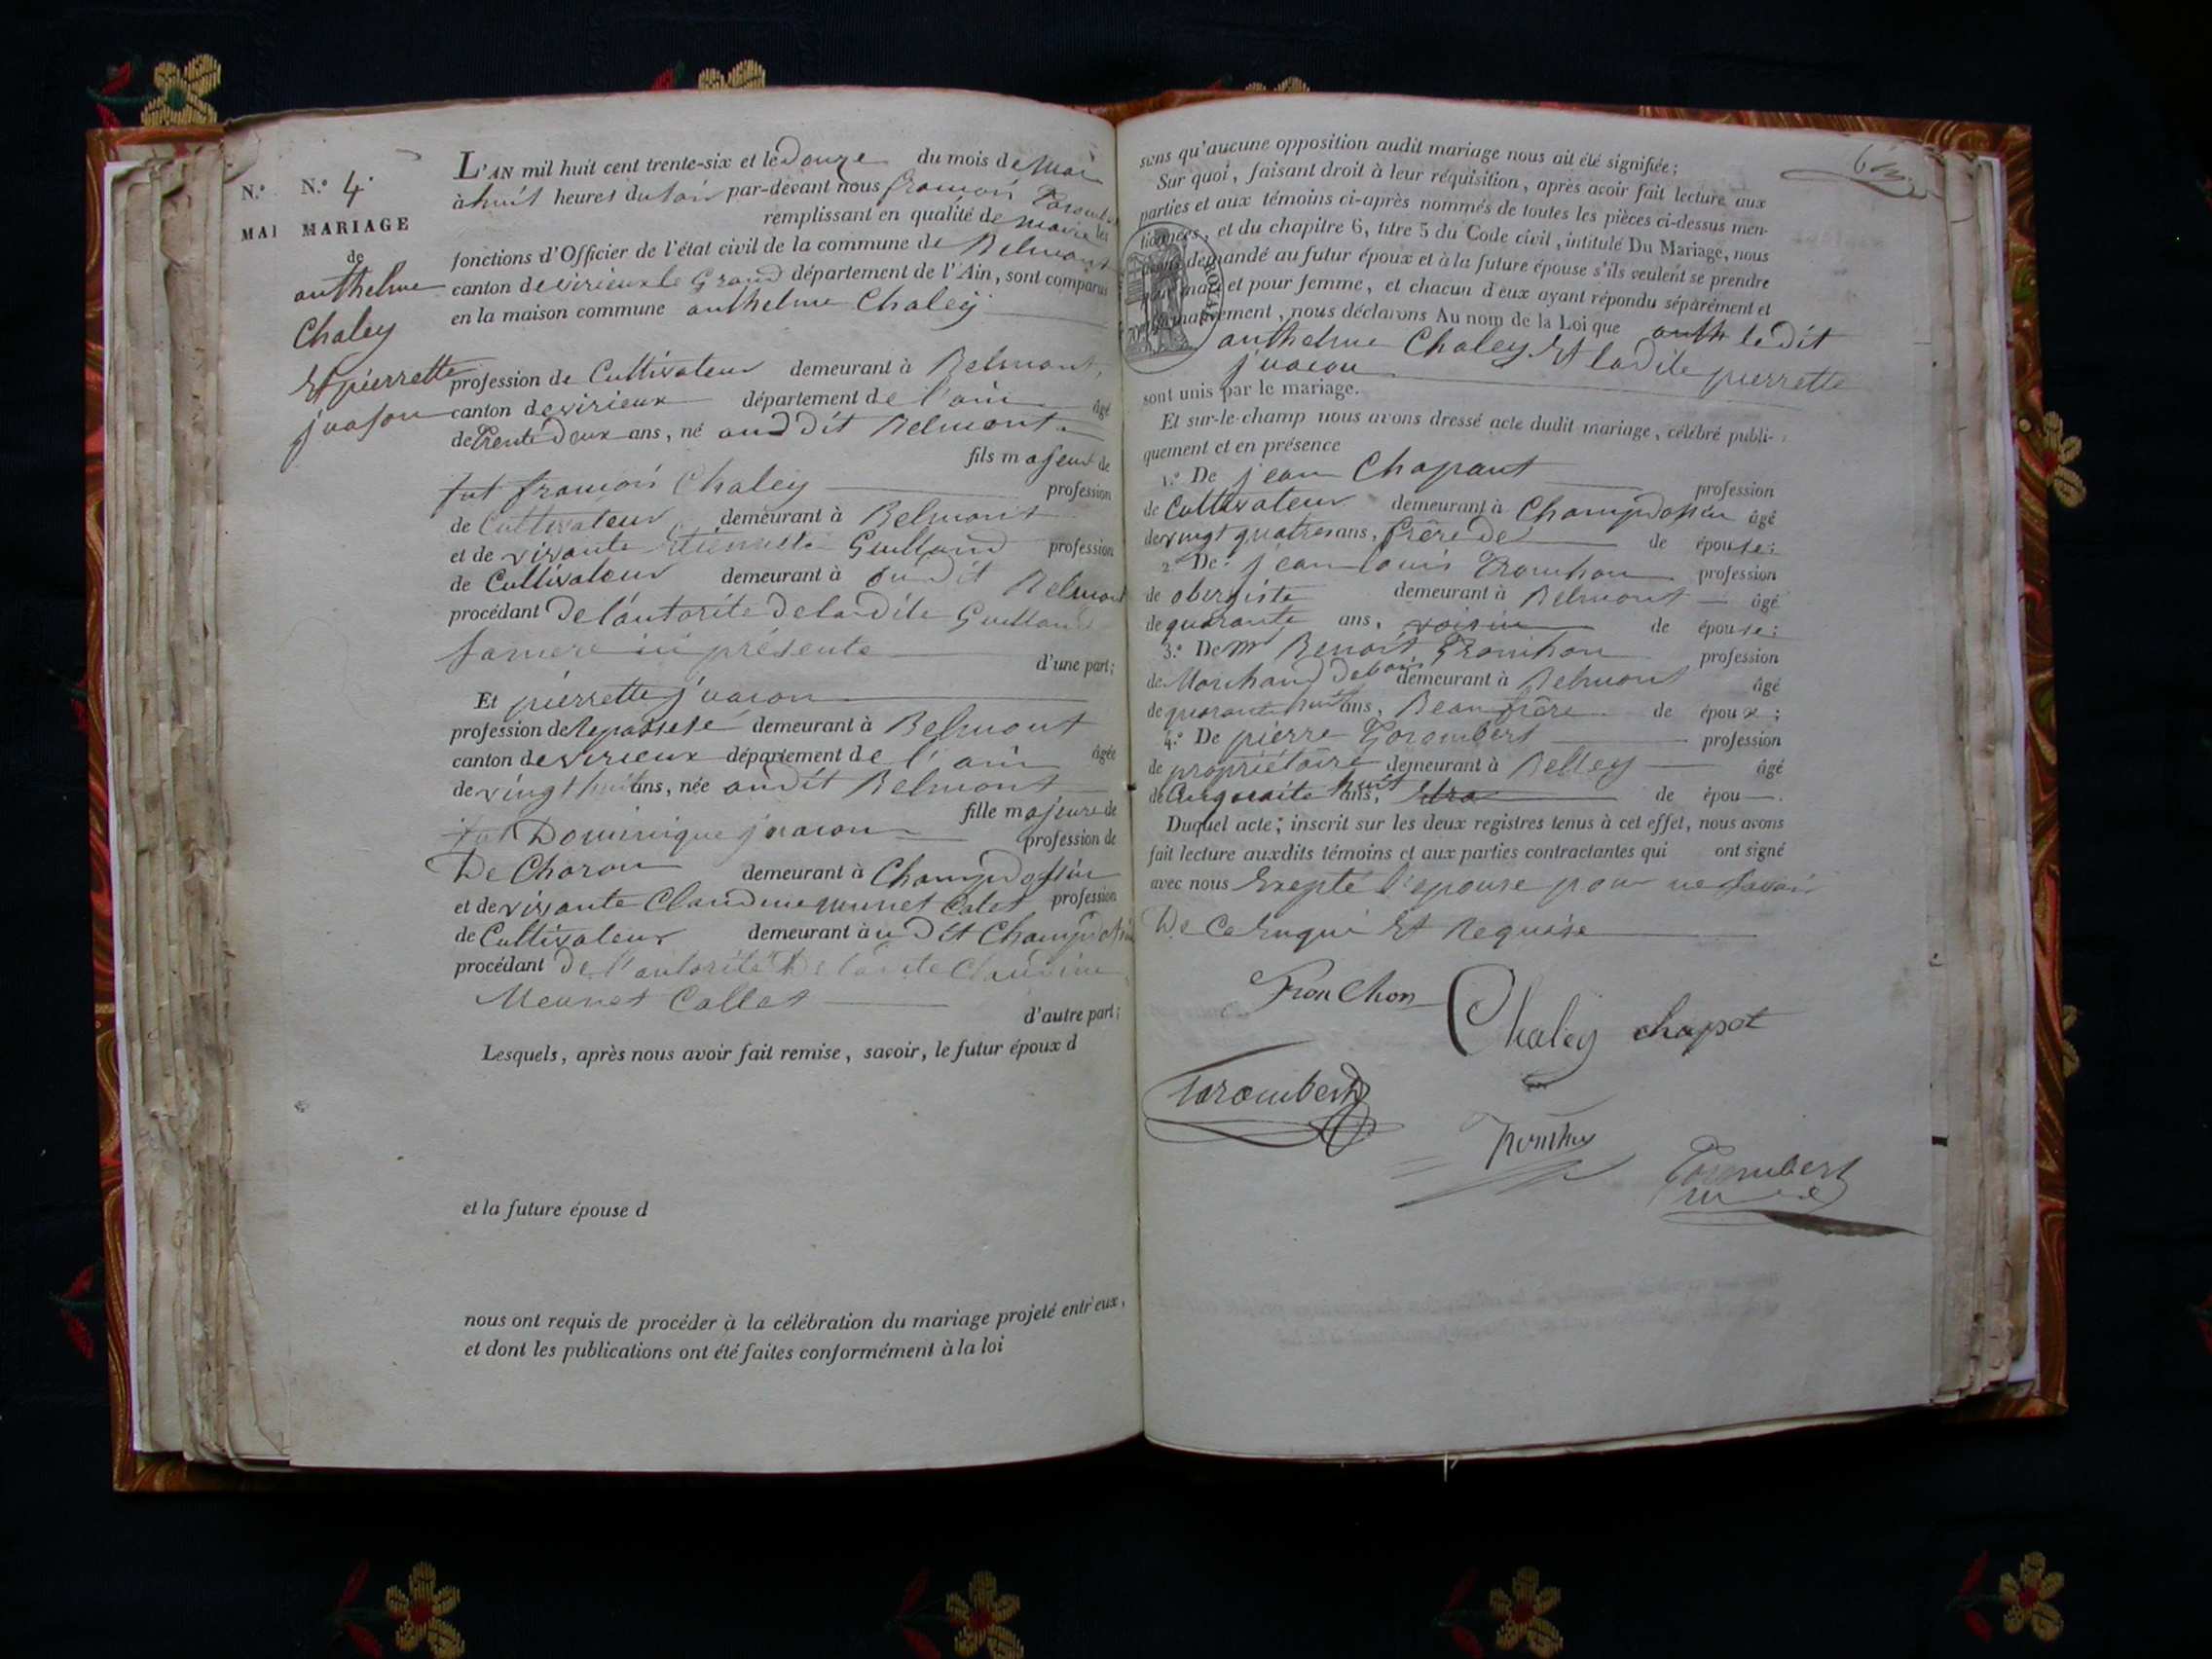 N.º N.º 4.
MAI MARIAGE
de
anthelme
Chaley
Et pierrette
juason
L'AN mil huit cent trente-six et le Douze du mois de Mai
à huit heures du soir par-devant nous françois
remplissant en qualité de Maire les
fonctions d'Officier de l'état civil de la commune de Belmont
canton de virieux le Grand département de l'Ain, sont comparus
en la maison commune anthelme Chaley
profession de Cultivateur demeurant à Belmont,
canton de virieux département de l'ain âgé
de Trente Deux ans, né audit Belmont
fils majeur de
fut françois Chaley profession
de Cultivateur demeurant à Belmont
et de vivante Etiennete Guilland profession
de Cultivateur demeurant à audit Belmont
procédant De l'autorite De la Dite Guilland
sa mere ici présente d'une part;
Et pierrette juacon
profession de Repassese demeurant à Belmont
canton de virieux département de l'ain âgée
de vingt huit ans, née audit Belmont
fille majeure de
fut Dominique juacon profession de
De Charon demeurant à Champdossin
et de vivante Claudine Meunet Calet profession
de Cultivateur demeurant à uDit Champdossin
procédant De l'autorité De la dite Claudine
Meunet Callet d'autre part;
Lesquels, après nous avoir fait remise, savoir, le futur époux d
et la future épouse d
nous ont requis de procéder à la célébration du mariage projeté entr'eux,
et dont les publications ont été faites conformément à la loi
sans qu'aucune opposition audit mariage nous ait été signifiée;
Sur quoi, faisant droit à leur réquisition, après avoir fait lecture aux
parties et aux témoins ci-après nommés de toutes les pièces ci-dessus men-
tionnées, et du chapitre 6, titre 5 du Code civil, intitulé Du Mariage, nous
avons demandé au futur époux et à la future épouse s'ils veulent se prendre
pour mari et pour femme, et chacun d'eux ayant répondu séparément et
affirmativement, nous déclarons Au nom de la Loi que anth le dit
anthelme Chaley Et la Dite pierrette
juacon
sont unis par le mariage.
ROYAL
Et sur-le-champ nous avons dressé acte dudit mariage, célébré publi-
quement et en présence
1.º De jean Chapant profession
de Cultivateur demeurant à Champdossin âgé
de vingt quatres ans, frère de de épouse;
2.º De jean louis Tronchon profession
de obergiste demeurant à Belmont âgé
de quarante ans, voisin de épouse;
3.º De mr Benoit Tronchon profession
de Marchand De bois demeurant à Belmont âgé
de quarante huit ans, Beau frère de époux;
4.º De pierre Tarombert profession
de propriétaire demeurant à Belley âgé
de Cinquante huit ans, de épou
Duquel acte; inscrit sur les deux registres tenus à cet effet, nous avons
fait lecture auxdits témoins et aux parties contractantes qui ont signé
avec nous Exepté l'epouse pour ne Savoir
De ce Enqui Et Requise
Tronchon Chaley chapot
Tarombert
Tronchon
Tarombert